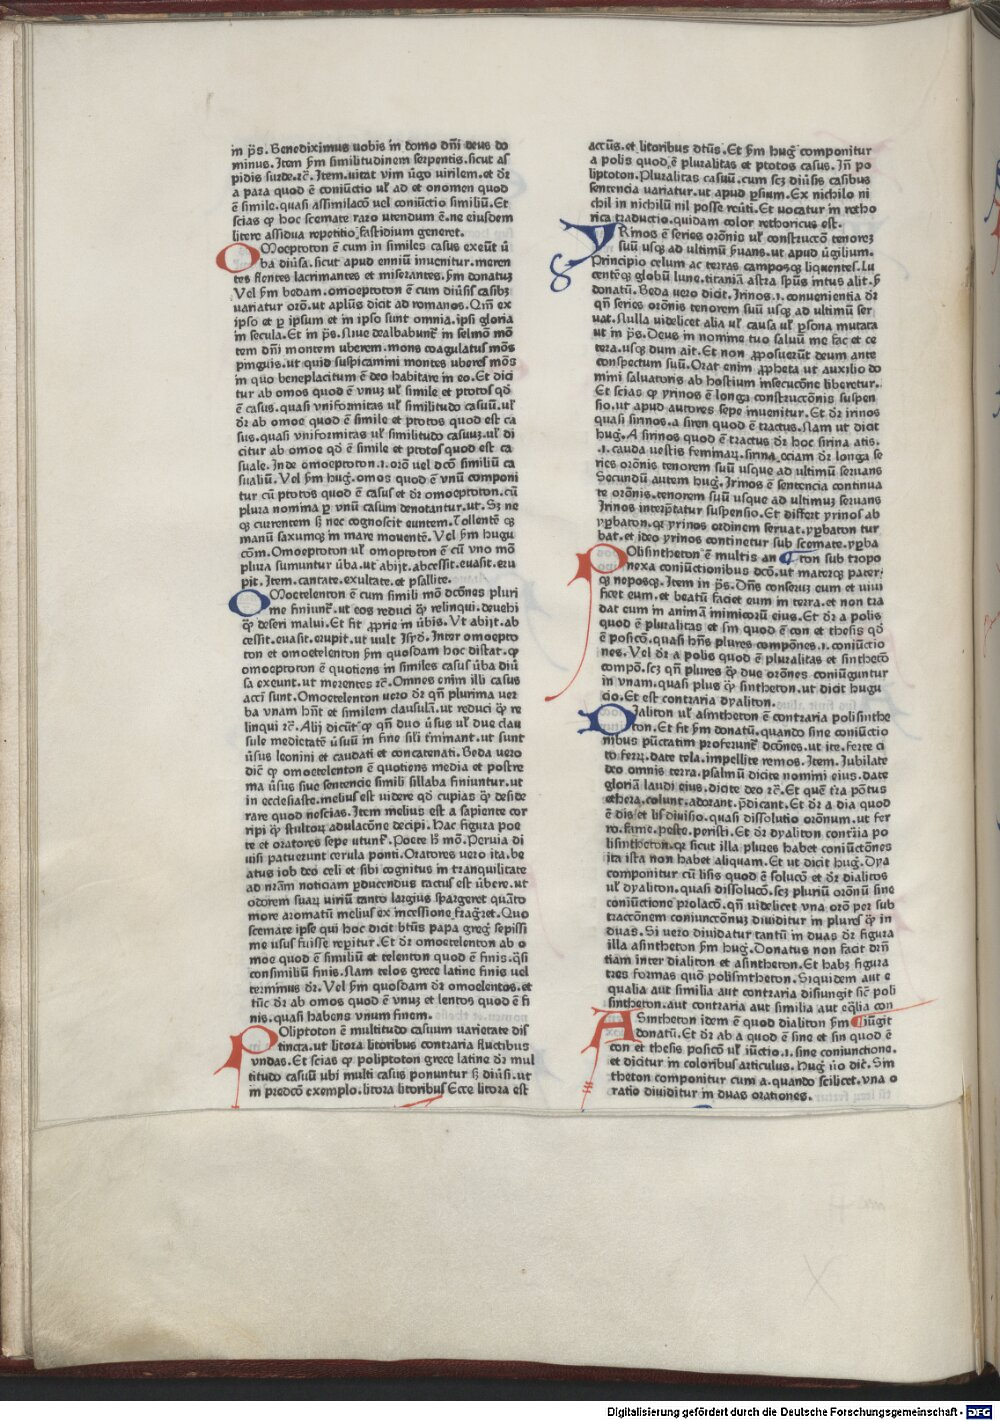 in p̄s. Benediximus uobis in domo dn̄i deus do
minus. Item ẜm similitudinem serpentis. sicut as
pidis surde. ⁊c̄. Item. uitat vim v̓go uirilem. et dr̄
a para quod ē coniūctio ul̓ ad et onomen quod
ē simile. quasi assimilacō uel coniūctio similiū. Et
scias ꝙ hoc scemate raro utendum ē. ne eiusdem
litere assidua repetitio fastidium generet.
OMoeptoton ē cum in similes casus exeūt ū
ba diūsa. sicut apud enniū inuenitur. meren
tes flentes lacrimantes et miserantes. ẜm donatuꝫ
Vel ẜm bedam. omoeptoton ē cum diūsis casibꝫ
uariatur orō. ut aplūs dicit ad romanos. Qm̄ ex
ipso et ꝑ ipsum et in ipso sunt omnia. ipsi gloria
in secula. Et in p̄s. Niue dealbabunt̄ in selmō mō
tem dn̄i montem uberem. mons coagulatus mōs
pinguis. ut quid suspicamini montes uberes mōs
in quo beneplacitum ē deo habitare in eo. Et dici
tur ab omos quod ē vnuꝫ ul̓ simile et protos qd̄
ē casus. quasi vniformitas ul̓ similitudo casuū. ul̓
dr̄ ab omoe quod ē simile et ptotos quod est ca
sus. quasi vniformitas ul̓ similitudo casuuꝫ. ul̓ di
citur ab omoe qd̄ ē simile et ptotos quod est ca
suale. Inde omoeptoton .ı. orō uel dcō similiū ca
sualiū. Vel ẜm hug̓. omos quod ē vnū componi
tur cū ptotos quod ē casus et dr̄ omoeptoton. cū
plura nomina ꝑ vnū casum denotantur. ut. Sꝫ ne
qꝫ currentem ẜ nec cognoscit euntem. Tollentē qꝫ
manū saxumqꝫ in mare mouentē. Vel ẜm hugu
cōm. Omoeptoton ul̓ omoptoton ē cū vno mō
plura sumuntur ūba. ut abijt. abcessit. euasit. eru
pit. Item. cantate. exultate. et psallite.
OMoetelenton ē cum simili mō dcōnes pluri
me finiunt̄. ut eos reduci q̄ȝ relinqui. deuehi
q̄ȝ deseri malui. Et fit ꝓprie in ūbis. Vt abijt. ab
cessit. euasit. erupit. ut uult Isyd̓. Inter omoepto
ton et omoetelenton ẜm quosdam hoc distat. ꝙ
omoeptoton ē quotiens in similes casus ūba diū
sa exeunt. ut merentes ⁊c̄. Omnes enim illi casus
acti sunt. Omoetelenton uero dr̄ qn̄ plurima uer
ba vnam hn̄t et similem clausulā. ut reduci q̄ȝ re
linqui ⁊c̄. Alij dicūt ꝙ qn̄ duo v̓sus ul̓ due clau
sule medietatē v̓suū in fine sili t̄minant. ut sunt
v̓sus leonini et caudati et concatenati. Beda uero
dic̄ ꝙ omoetelenton ē quotiens media et postre
ma v̓sus siue sentencie simili sillaba finiuntur. ut
in ecclesiaste. melius est uidere qd̄ cupias q̄ȝ deside
rare quod nescias. Item melius est a sapiente cor
ripi q̄ȝ stultoꝝ adulacōne decipi. Hac figura poe
te et oratores sepe utunt̄. Poete h̄ mō. Peruia di
uisi patuerunt cerula ponti. Oratores uero ita. be
atus iob deo celi et sibi cognitus in tranquilitate
ad nr̄am noticiam ꝑducendus tactus est v̓bere. ut
odorem suaꝝ uiriū tanto largius spargeret quāto
more aromatū melius ex incessione fragr̄et. Quo
scemate ipse qui hoc dicit bt̄us papa greg̓ sepissi
me usus fuisse reꝑitur. Et dr̄ omoetelenton ab o
moe quod ē similiū et telenton quod ē finis. q̄si
consimiliū finis. Nam telos grece latine finis uel
terminus dr̄. Vel ẜm quosdam dr̄ omoelentos. et
tūc dr̄ ab omos quod ē vnuꝫ et lentos quod ē fi
nis. quasi habens vnum finem.
POliptoton ē multitudo casuum uarietate dis
tincta. ut litora litoribus contraria fluctibus
vndas. Et scias ꝙ poliptoton grece latine dr̄ mul
titudo casuū ubi multi casus ponuntur ẜ diūsi. ut
in predcō exemplo. litora litoribus Ecce litora est
accūs. et litoribus dtūs. Et ẜm hug̓ componitur
a polis quod ē pluralitas et ptotos casus. In̄ po
liptoton. Pluralitas casuū. cum scꝫ diūsis casibus
sentencia uariatur. ut apud ꝑsium. Ex nichilo ni
chil in nichilū nil posse reūti. Et uocatur in retho
rica traductio. quidam color rethoricus est.
YRinos ē series orōnis ul̓ construccō tenoreꝫ
suū usqꝫ ad ultimū ẜuans. ut apud v̓gilium.
Principio celum ac terras camposqꝫ liquentes. Lu
centēqꝫ globū lune. titaniā astra sp̄us intus alit. ẜ
donatū. Beda uero dicit. Irinos .ı. conuenientia dr̄
qn̄ series orōnis tenorem suū usqꝫ ad ultimū ser
uat. Nulla uidelicet alia ul̓ causa ul̓ ꝑsona mutata
ut in p̄s. Deus in nomine tuo saluū me fac et ce
tera. usqꝫ dum ait. Et non ꝓposuerūt deum ante
conspectum suū. Orat enim ꝓpheta ut auxilio do
mini saluatoris ab hostium insecucōne liberetur.
Et scias ꝙ yrinos ē longa construccōnis suspen
sio. ut apud autores sepe inuenitur. Et dr̄ irinos
quasi sirinos. a siren quod ē tractus. Nam ut dicit
hug̓. A sirinos quod ē tractus dr̄ hoc sirina atis.
.ı. cauda uestis feminaꝝ. sirina eciam dr̄ longa se
ries orōnis tenorem suū usque ad ultimū seruans
Secundū autem hug̓. Irinos ē sentencia continua
te orōnis. tenorem suū usque ad ultimuꝫ seruans
Irinos interp̄tatur suspensio. Et differt yrinos ab
yꝑbaton. qꝛ yrinos ordinem seruat. yꝑbaton tur
bat. et ideo yrinos continetur sub scemate. yꝑba
POlisintheton ē multis an ¶ ton sub tropo
nexa coniūctionibus dcō. ut materqꝫ pater
qꝫ neposqꝫ. Item in p̄s. Dn̄s conseruꝫ eum et viui
ficet eum. et beatū faciet eum in terra. et non tra
dat eum in animā inimicoꝝ eius. Et dr̄ a polis
quod ē pluralitas et sin quod ē con et thesis qd̄
ē posicō. quasi hn̄s plures compōnes .ı. coniūctio
nes. Vel dr̄ a polis quod ē pluralitas et sinthetō
compō. scꝫ qn̄ plures q̄ȝ due orōnes coniūguntur
in vnam. quasi plus q̄ȝ sintheton. ut dicit hugu
cio. Et est contraria dyaliton.
DIaliton ul̓ asintheton ē contraria polisinthe
ton. Et fit ẜm donatū. quando sine coniūctio
nibus pūctatim proferunt̄ dcōnes. ut ite. ferte ci
to ferꝝ. date tela. impellite remos. Item. Jubilate
deo omnis terra. psalmū dicite nomini eius. date
gloriā laudi eius. dicite deo ⁊c̄. Et quē t̄ra pōtus
ethera. colunt. adorant. p̄dicant. Et dr̄ a dia quod
ē dis et lis diuisio. quasi dissolutio orōnum. ut fer
ro. fame. peste. peristi. Et dr̄ dyaliton contr̄ia po
lisintheton. qꝛ sicut illa plures habet coniūctōnes
ita ista non habet aliquam. Et ut dicit hug̓. Dya
componitur cū lisis quod ē solucō et dr̄ dialitos
ul̓ dyaliton. quasi dissolucō. scꝫ pluriū orōnū sine
coniūctione prolacō. qn̄ uidelicet vna orō per sub
traccōnem coniunccōnuꝫ diuiditur in plures q̄ȝ in
duas. Si uero diuidatur tantū in duas dr̄ figura
illa asintheton ẜm hug̓. Donatus non facit dr̄n
tiam inter dialiton et asintheton. Et habꝫ figura
tres formas quō polisintheton. Siquidem aut e
qualia aut similia aut contraria disiungit sic̄ poli
sintheton. aut contraria aut similia aut eq̄lia con
ASintheton idem ē quod dialiton ẜm ¶ iūgit
donatū. Et dr̄ ab a quod ē sine et sin quod ē
con et thesis posicō ul̓ iūctio .ı. sine coniunctione.
et dicitur in coloribus articulus. Hug̓ ūo dic̄. Sin
theton componitur cum a. quando scilicet. vna o
ratio diuiditur in duas orationes.
Digitalisierung gefördert durch die Deutsche Forschungsgemeinschaft - DFG